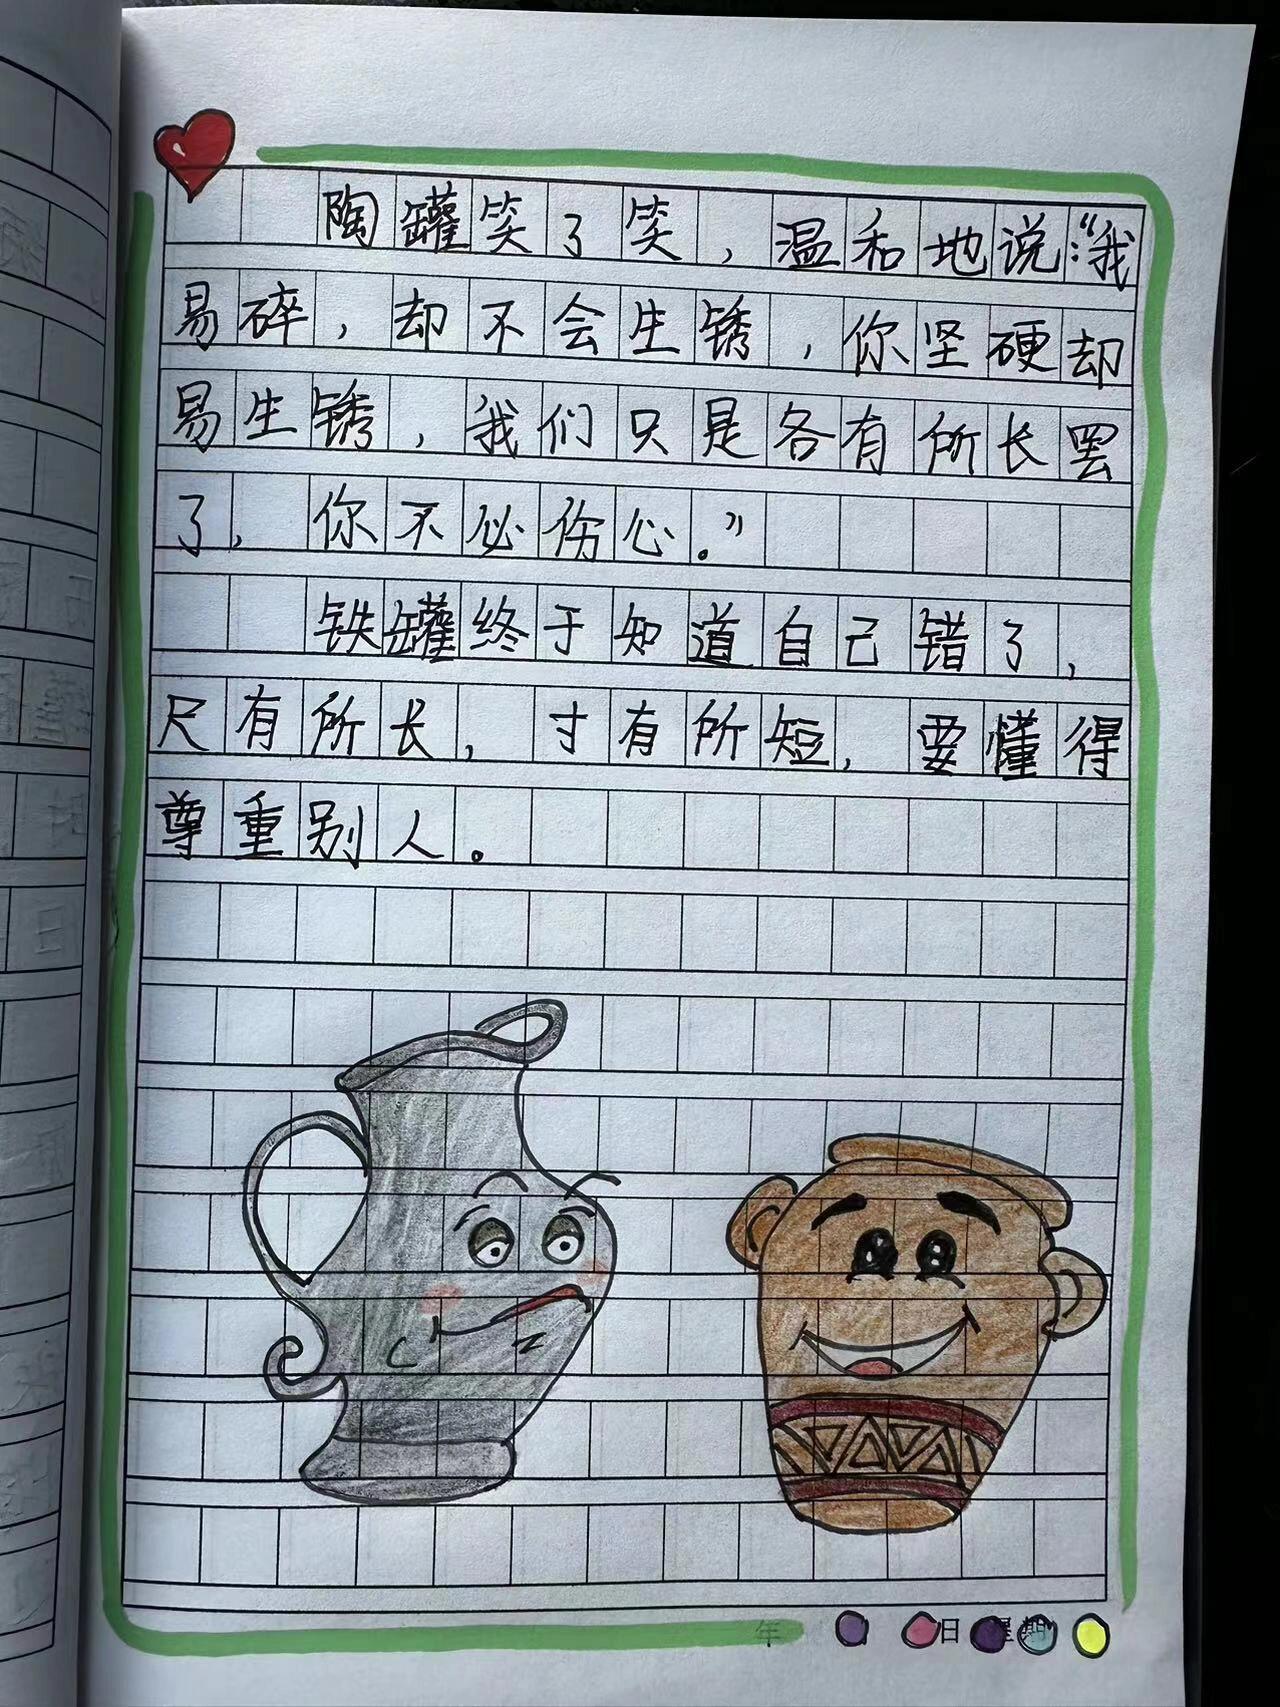 陶罐笑了笑，温和地说：“我
易碎，却不会生锈，你坚硬却
易生锈，我们只是各有所长罢
了，你不必伤心。”
铁罐终于知道自己错了，
尺有所长，寸有所短，要懂得
尊重别人。
年 日 星期